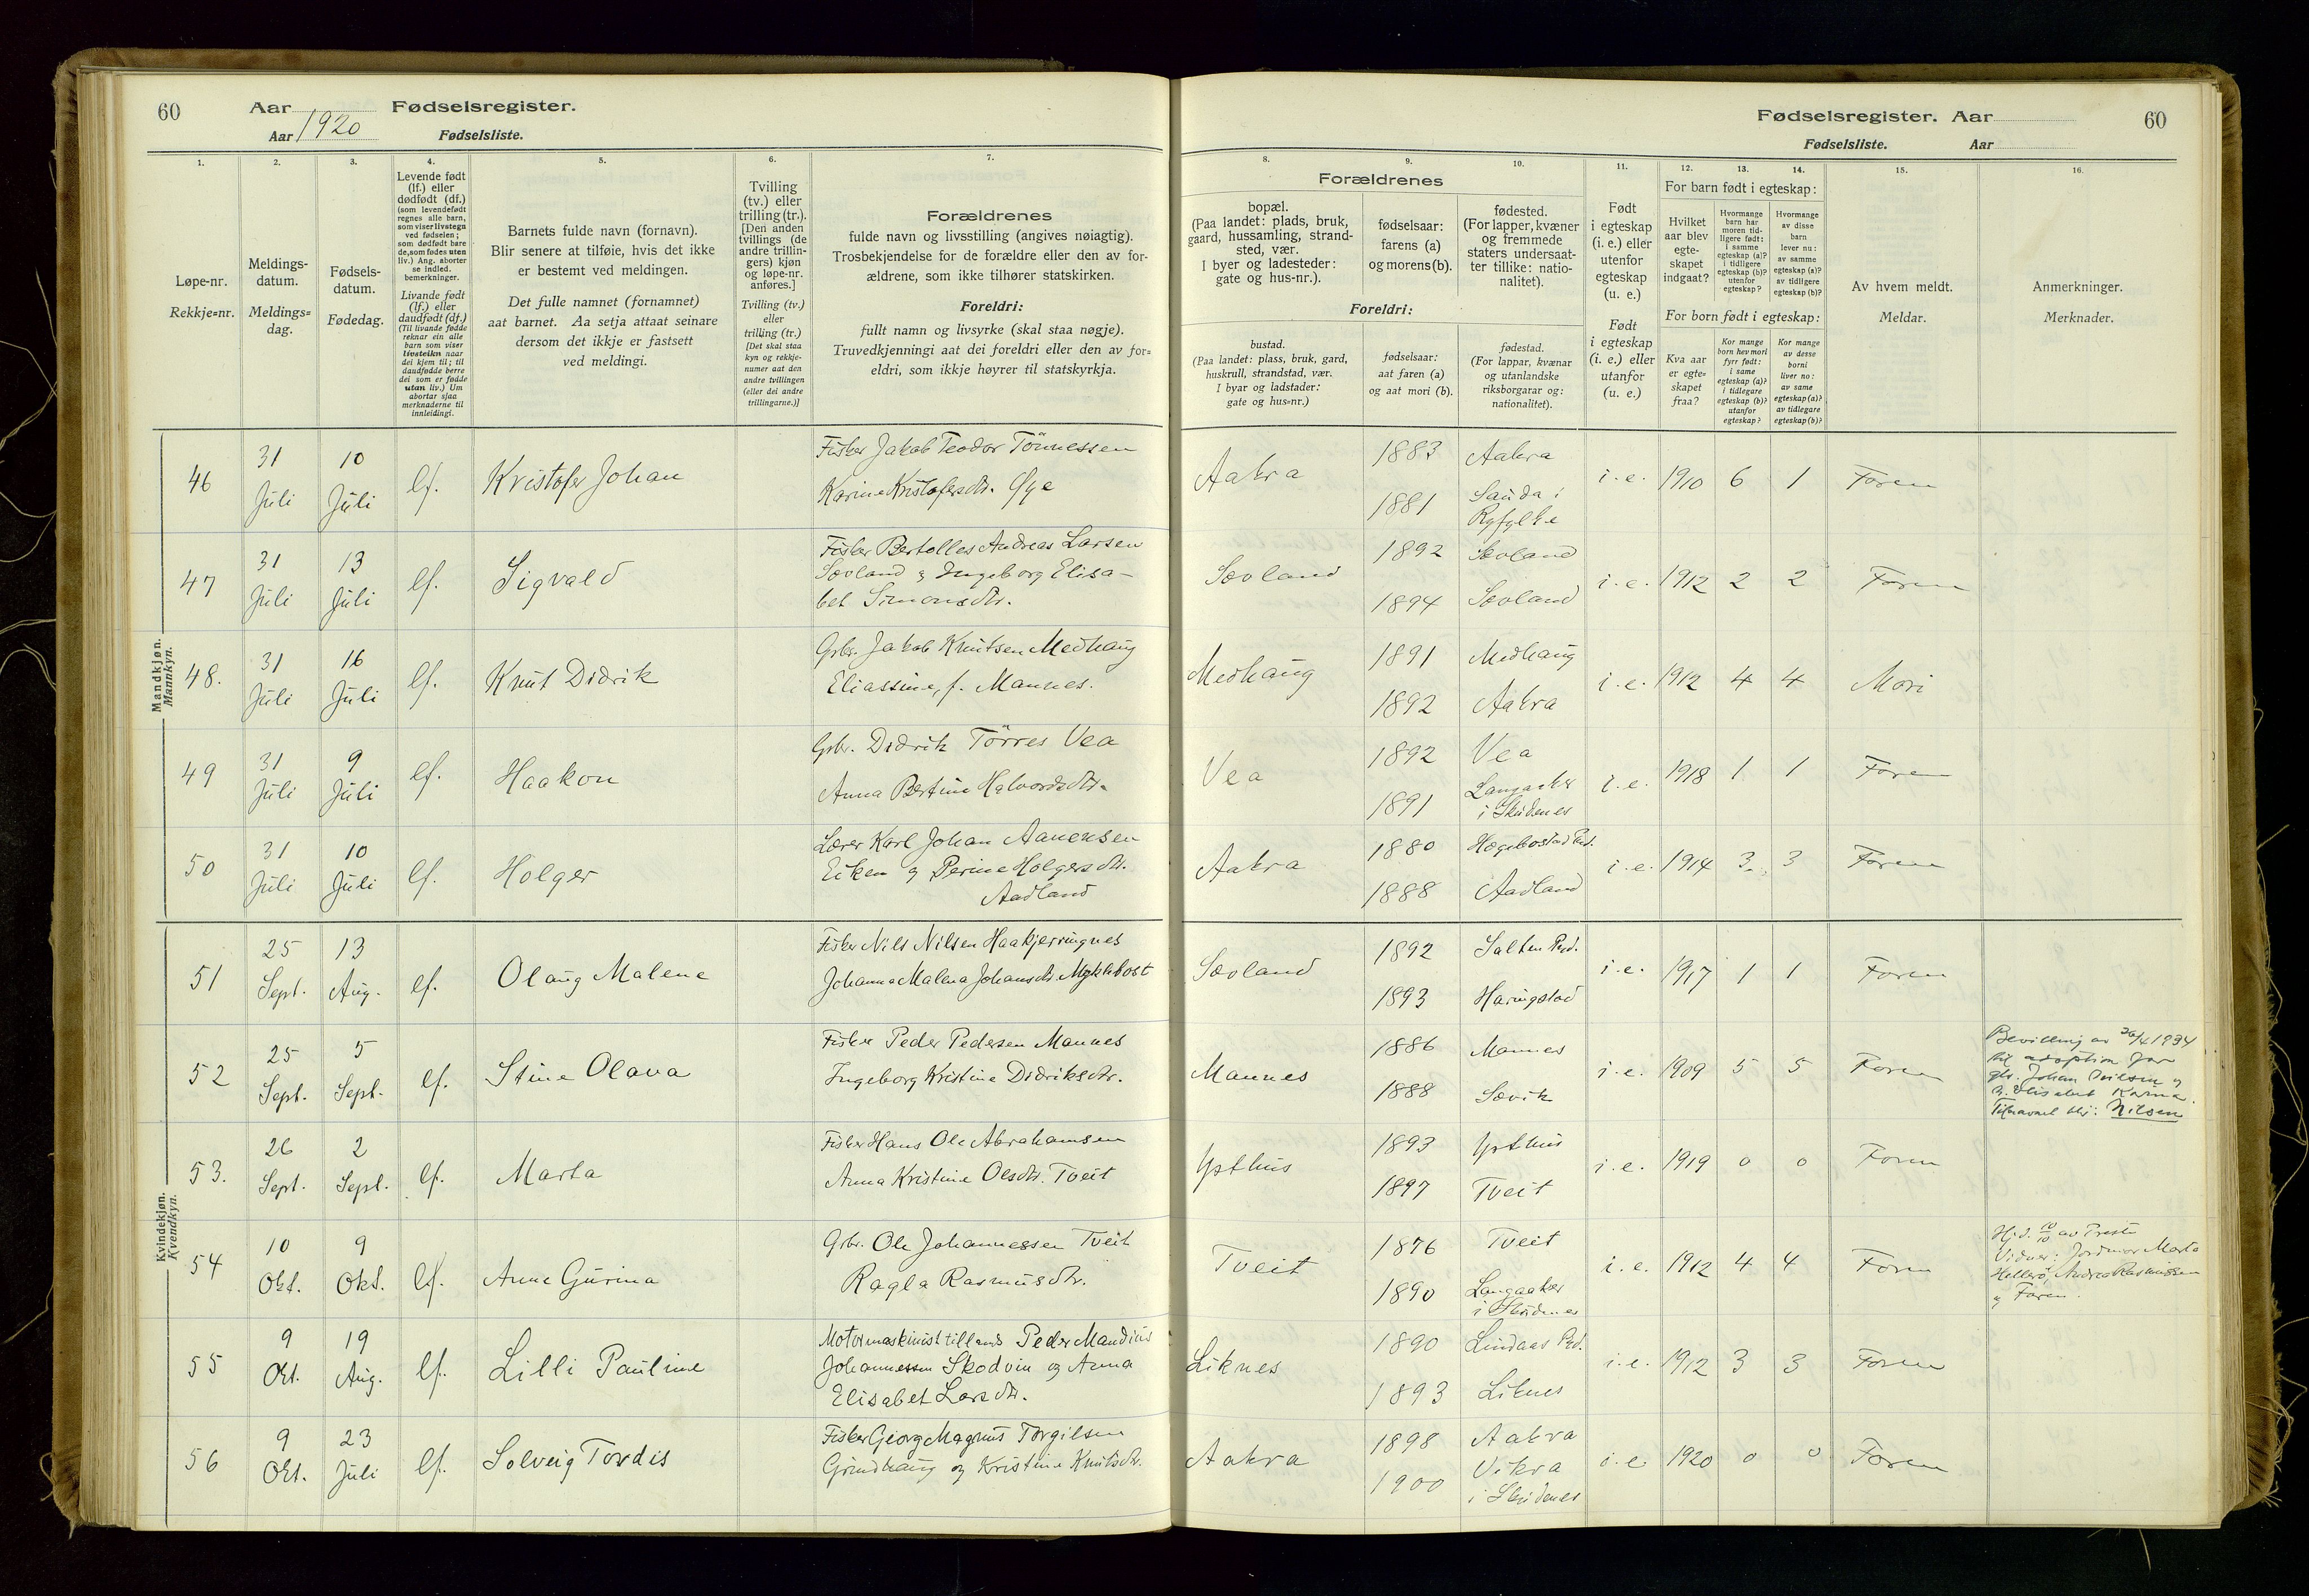 60
Aar
Fødselsregister.
Aar 1920
Fødselsliste.
1.
2.
3.
4.
5.
6.
7.
Løpe-nr.
Rekkje=nr.
Meldings-
datum.
Meldings=
dag.
Fødsels-
datum.
Fødedag.
Levende født
(lf.) eller
dødfødt (df.)
(som levendefødt
regnes alle barn,
som viser livstegn
ved fødselen;
som dødfødt bare
de, som fødes uten
liv.) Ang. aborter
se indled.
bemerkninger.
Livande født
(lf.) eller
daudfødt (df.)
(Til livande fødde
reknar ein alle
barn som viser
livsteikn naar
dei kjem til; til
daudfødde berre
dei som er fødde
utan liv.) Um
abortar sjaa
merknaderne til
innleidingi.
Barnets fulde navn (fornavn).
Blir senere at tilføie, hvis det ikke
er bestemt ved meldingen.
Det fulle namnet (fornamnet)
aat barnet. Aa setja attaat seinare
dersom det ikkje er fastsett
ved meldingi.
Tvilling
(tv.) eller
trilling (tr.).
[Den anden
tvillings (de
andre trillin-
gers) kjøn
og løpe-nr.
anføres.]
Tvilling (tv.)
eller
trilling (tr.)
[Det skal staa
kyn og rekkje-
numer aat den
andre tvillingen
(eller dei andre
trillingarne.)]
Forældrenes
fulde navn og livsstilling (angives nøiagtig).
Trosbekjendelse for de forældre eller den av for-
ældrene, som ikke tilhører statskirken.
Foreldri:
fullt namn og livsyrke (skal staa nøgje).
Truvedkjenningi aat dei foreldri eller den av for=
eldri, som ikkje høyrer til statskyrkja.
Mandkjøn.
Mannkyn.
46
31
Juli
10
Juli
lf.
Kristofer Johan
Fisker Jakob Teodor Tönnessen
Karine Kristofersdtr.
47
31
Juli
13
Juli
lf.
Sigvald
Fisker Bertolles Andreas Larsen
Sævland og Ingeborg Elisa-
bet Simonsdtr.
48.
31
Juli
16
Juli
lf.
Knut Didrik
Grbr. Jakob Knutsen Medhaug
Eliassine, f. Mannes.
49
31
Juli
9
Juli
lf.
Haakon
Grbr. Didrik Törres Vea
Anna Bertine Halvordsdtr.
50
31
Juli
10
Juli
lf.
Holger
Lærer Karl Johan Aanensen
Eiken og Perine Holgersdtr.
Aadland
Kvindekjøn.
Kvendkyn.
51
25
Sept.
13
Aug.
lf.
Olaug Malene
Fisker Nils Nilsen Haakjerringnes
Johanna Malena Johansdtr. Myklebost
52
25
Sept.
5
Sept.
lf.
Stine Olava
Fisker Peder Pedersen Mannes
Ingeborg Kristine Didriksdtr.
53.
26
Sept.
2
Sept.
lf.
Marta
Fisker Hans Ole Abrahamsen
Anna Kristine Olsdtr. Tveit
54
10
Okt.
9
Okt.
lf.
Anne Gurina
Grbr. Ole Johannessen Tveit
Ragla Rasmusdtr.
55
9
Okt.
19
Aug.
lf.
Lilli Pauline
Motormaskinist tillands Peder Mandius
Johannessen Skodvin og Anna
Elisabet Larsdtr.
56
9
Okt.
23
Juli
lf.
Solveig Tordis
Fisker Georg Magnus Torgilsen
Grindhaug og Kristine Knutsdtr.
Fødselsregister. Aar
60
Fødselsliste.
Aar
8.
9.
10.
11.
12.
13.
14.
15.
16.
Forældrenes
bopæl.
(Paa landet: plads, bruk,
gaard, hussamling, strand-
sted, vær.
I byer og ladesteder:
gate og hus-nr.).
fødselsaar:
farens (a)
og morens (b).
fødested.
(For lapper, kvæner
og fremmede
staters undersaat-
ter tillike: natio-
nalitet).
Foreldri:
bustad.
(Paa landet: plass, bruk, gard,
huskrull, strandstad, vær.
I byar og ladstader:
gate og hus=nr.)
fødselsaar:
aat faren (a)
og aat mori (b).
fødestad.
(For lappar, kvænar
og utanlandske
riksborgarar og:
nationalitet).
Født
i egteskap
(i. e.) eller
utenfor
egteskap
(u. e.)
Født
i egteskap
(i. e.) eller
utanfor
(u. e.)
For barn født i egteskap:
Hvilket
aar blev
egte-
skapet
indgaat?
Hvormange
barn har
moren tid-
ligere født:
i samme
egteskap (a)?
i tidligere
egteskap (b)?
utenfor
egteskap?
Hvormange
av disse
barn
lever nu:
av samme
egteskap (a)?
av tidligere
egteskap (b)?
For born født i egteskap:
Kva aar
er egte=
skapet
fraa?
Kor mange
born hev mori
fyrr født:
i same
egteskap (a)?
i tidlegare
egteskap (b)?
utanfor
egteskap?
Kor mange
av desse
borni
liver no:
av same
egteskap (a)?
av tidlegare
egteskap (b)?
Av hvem meldt.
Meldar.
Anmerkninger.
Merknader.
Aakra
1883
1881
Aakra
Sauda i
Ryfylke
i. e.
1910
6
1
Faren
Sævland
1892
1894
Sævland
Sævland
i. e.
1912
2
2
Faren
Medhaug
1891
1892
Medhaug
Aakra
i. e.
1912
4
4
Mori
Vea
1892
1891
Vea
Langaaker
i Skudenes
i. e.
1918
1
1
Faren
Aakra
1880
1888
Hægebostad Prd.
Aadland
i. e.
1914
3
3
Faren
Sævland
1892
1893
Salten Prd.
Haringstad
i. e.
1917
1
1
Faren
Mannes
1886
1888
Mannes
Sævik
i. e.
1909
5
5
Faren
Bevilling av 26/4 1934
til adoption for
gbr. Johan Nilsen og
h. Elisabet Karina.
Tilnavnet blir: Nilsen
Ysthus
1893
1897
Ysthus
Tveit
i. e.
1919
0
0
Faren
Tveit
1876
1890
Tveit
Langaaker
i Skudenes
i. e.
1912
4
4
Faren
Hj.d. 10/10 av Presten
Vidner: Jordmor Marta
Hellerö, Andrea Rasmussen
og Faren.
Liknes
1890
1893
Lindaas Prd.
Liknes
i. e.
1912
3
3
Faren
Aakra
1898
1900
Aakra
Vikra
i Skudenes
i. e.
1920
0
0
Faren